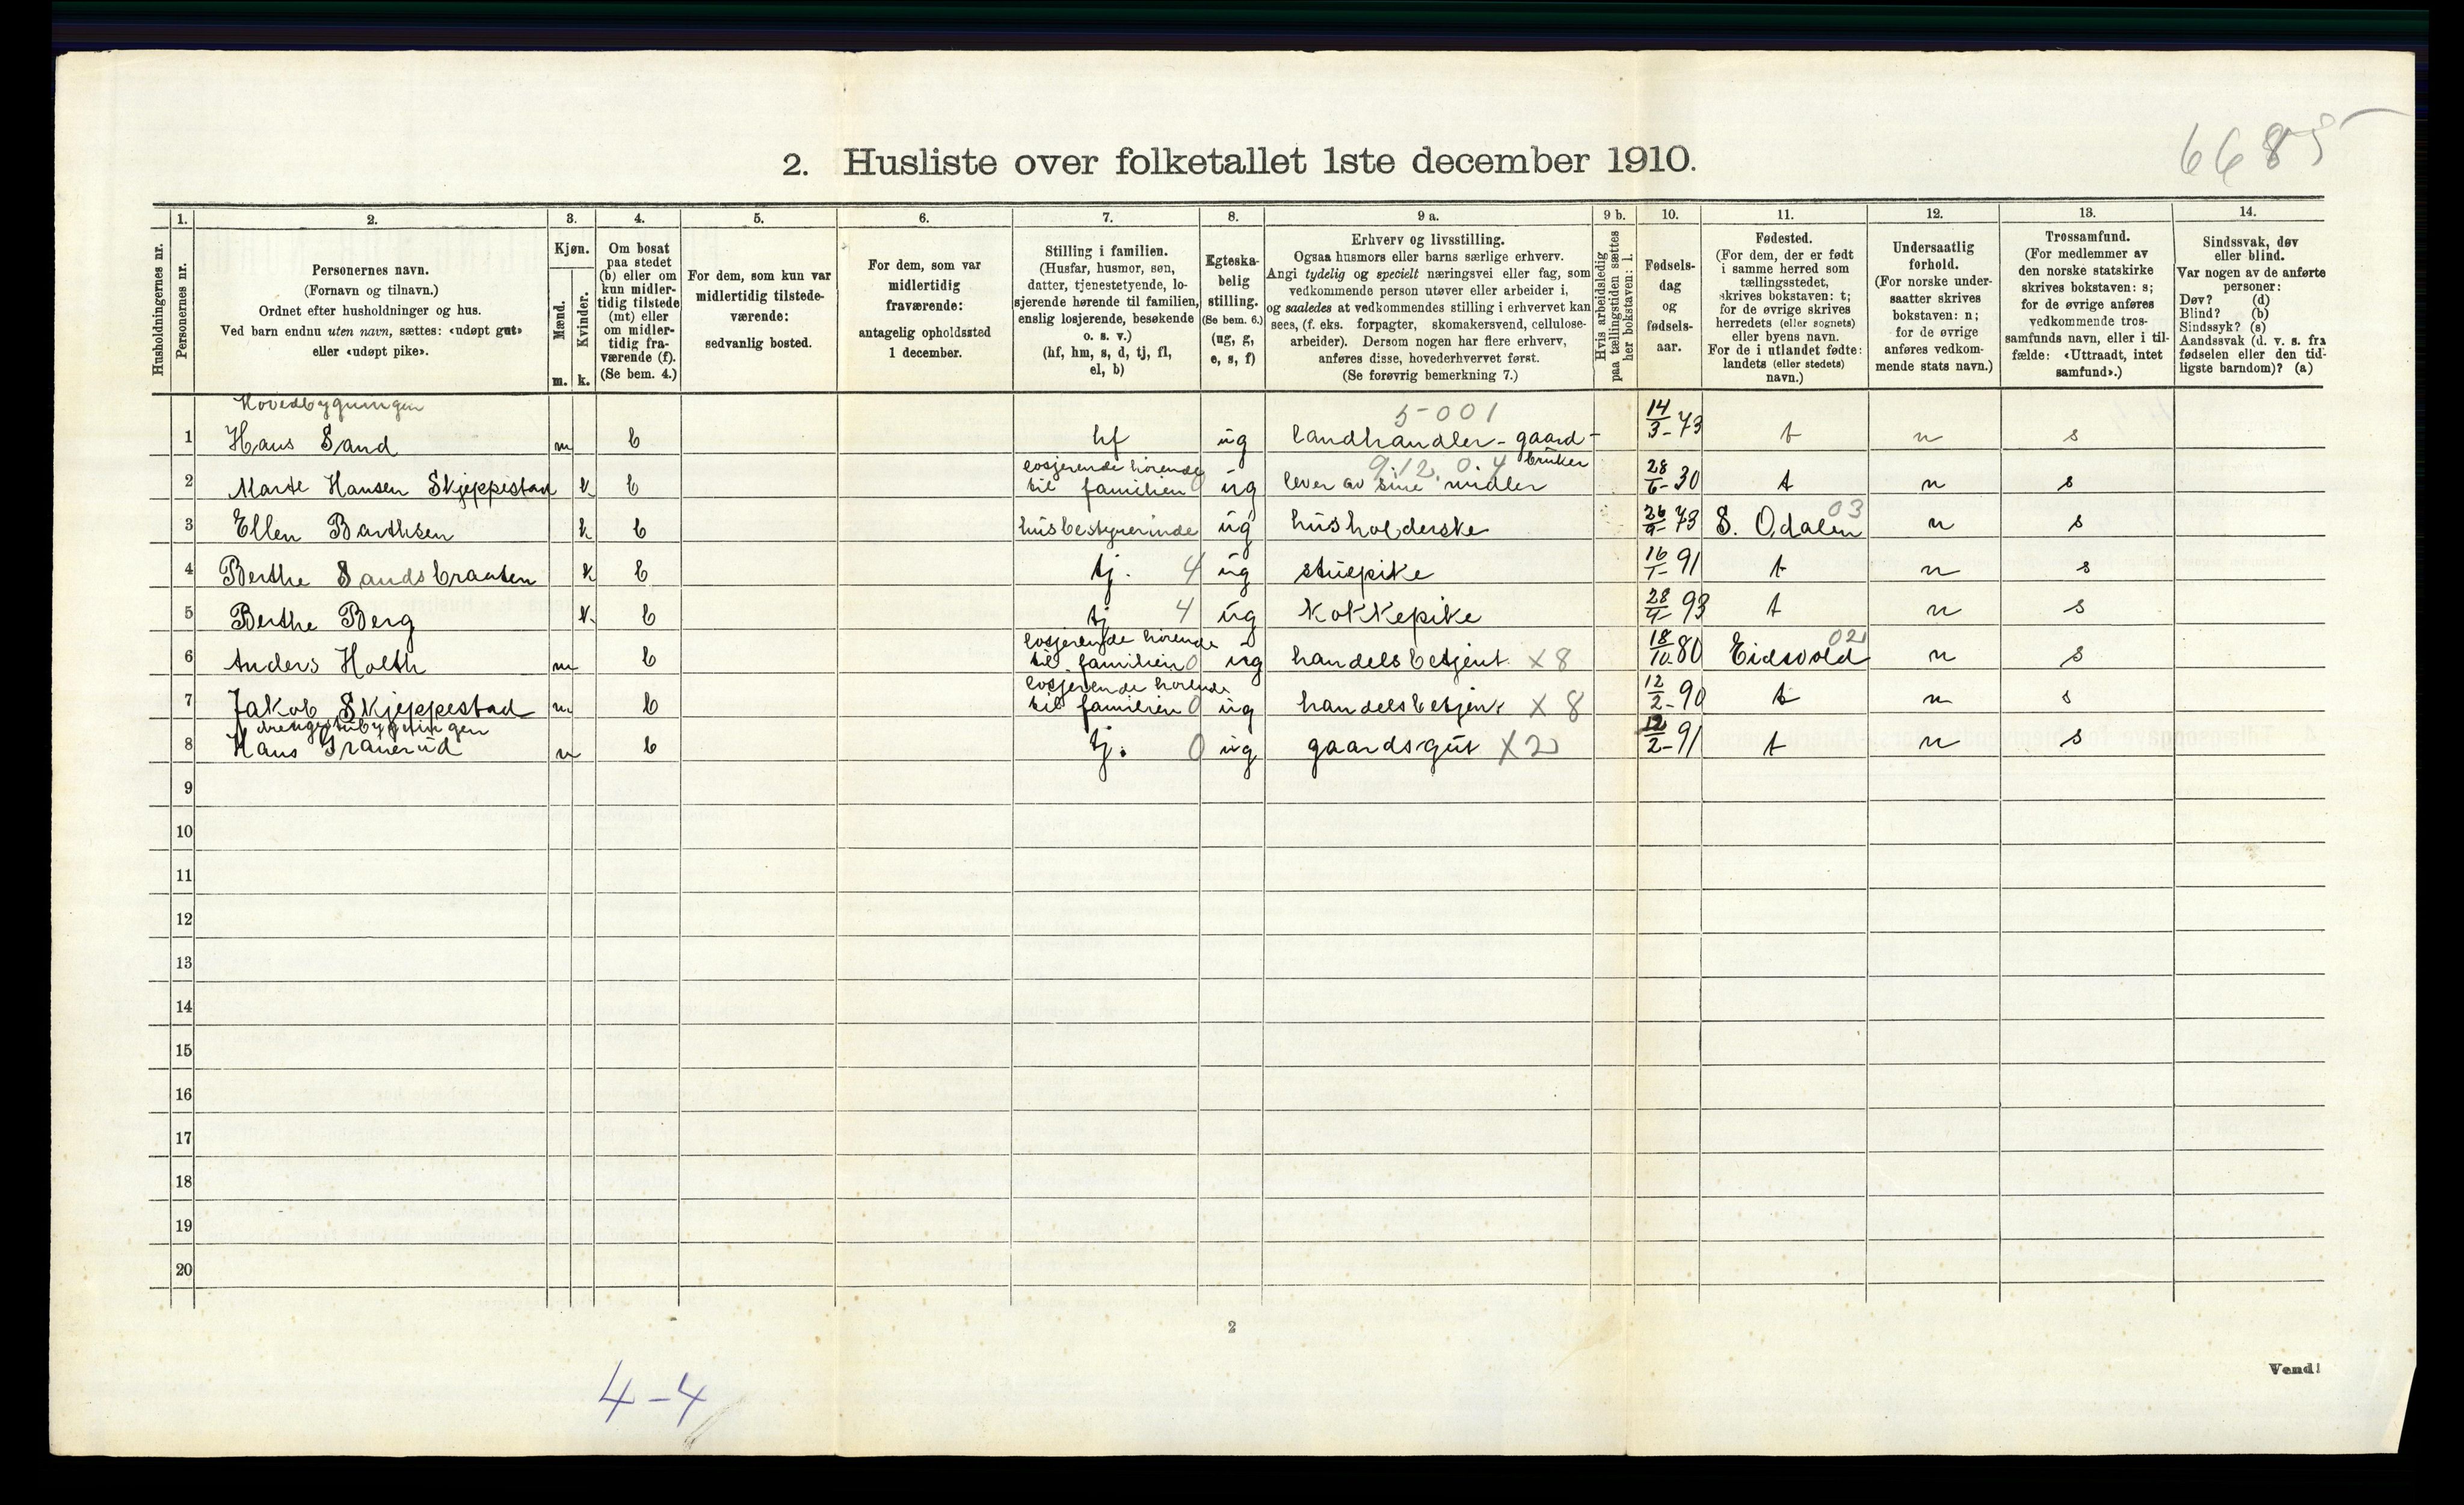 6685
2. Husliste over folketallet 1ste december 1910.
Husholdningernes nr.
1.
Personernes nr.
2.
Personernes navn.
(Fornavn og tilnavn.)
Ordnet efter husholdninger og hus.
Ved barn endnu uten navn, sættes: «udøpt gut»
eller «udøpt pike».
3.
Kjøn.
Mænd.
Kvinder.
m.
k.
4.
Om bosat
paa stedet
(b) eller om
kun midler-
tidig tilstede
(mt) eller
om midler-
tidig fra-
værende (f).
(Se bem. 4.)
5.
For dem, som kun var
midlertidig tilstede-
værende:
sedvanlig bosted.
6.
For dem, som var
midlertidig
fraværende:
antagelig opholdssted
1 december.
7.
Stilling i familien.
(Husfar, husmor, søn,
datter, tjenestetyende, lo-
sjerende hørende til familien,
enslig losjerende, besøkende
o. s. v.)
(hf, hm, s, d, tj, fl,
el, b)
8.
Egteska-
belig
stilling.
(Se bem. 6.)
(ug, g,
e, s, f)
9 a.
Erhverv og livsstilling.
Ogsaa husmors eller barns særlige erhverv.
Angi tydelig og specielt næringsvei eller fag, som
vedkommende person utøver eller arbeider i,
og saaledes at vedkommendes stilling i erhvervet kan
sees, (f. eks. forpagter, skomakersvend, cellulose-
arbeider). Dersom nogen har flere erhverv,
anføres disse, hovederhvervet først.
(Se forøvrig bemerkning 7.)
9 b.
Hvis arbeidsledig
paa tællingstiden sættes
her bokstaven: l.
10.
Fødsels-
dag
og
fødsels-
aar.
11.
Fødested.
(For dem, der er født
i samme herred som
tællingsstedet,
skrives bokstaven: t;
for de øvrige skrives
herredets (eller sognets)
eller byens navn.
For de i utlandet fødte:
landets (eller stedets)
navn.)
12.
Undersaatlig
forhold.
(For norske under-
saatter skrives
bokstaven: n;
for de øvrige
anføres vedkom-
mende stats navn.)
13.
Trossamfund.
(For medlemmer av
den norske statskirke
skrives bokstaven: s;
for de øvrige anføres
vedkommende tros-
samfunds navn, eller i til-
fælde: «Uttraadt, intet
samfund».)
14.
Sindssvak, døv
eller blind.
Var nogen av de anførte
personer:
Døv? (d)
Blind? (b)
Sindssyk? (s)
Aandssvak (d. v. s. fra
fødselen eller den tid-
ligste barndom)? (a)
Hovedbygningen
5-001
1 Hans Sand m b hf ug landhandler - gaard- 14/3-73 t n s
bruker
losjerende hørende 9.12.0.4
2 Marte Hansen Skjeppestad k b til familien 0 ug lever av sine midler 28/6-30 t n s
03
3 Ellen Barthsen k b husbestyrerinde ug husholderske 26/9-73 S. Odalen n s
4 Berthe Sandsbraaten k b tj. 4 ug stuepike 16/1-91 t n s
5 Berthe Berg k. b tj 4 ug kokkepike 28/9-93 t n s
losjerende hørende 02
6 Anders Holth m b til familien 0 ug handelsbetjent X 8 18/10.80 Eidsvold n s
losjerende hørende
7 Jakob Skjeppestad m b til familien 0 ug handelsbetjent X 8 12/2-90 t n s
drengestubygningen
8 Hans Granerud m b tj. 0 ug gaardsgut X 2 12/2-91 t n s
9
10
11
12
13
14
15
16
17
18
19
20
2
Vend!
4-4